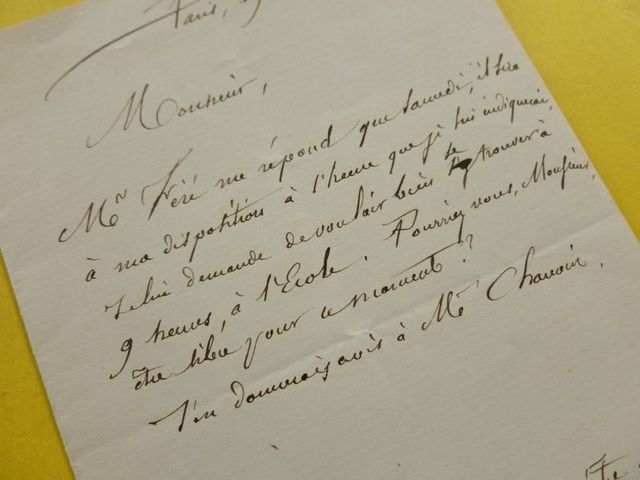 Paris,
Monsieur,
Mr Féré me répond que samedi, il sera
à ma disposition à l'heure que je lui indiquerai.
Je lui demande de vouloir bien se trouver à
9 heures, à l'Ecole. Pourriez vous, Monsieur,
être libre pour ce moment?
J'en donnerais avis à Mr Chauvin.